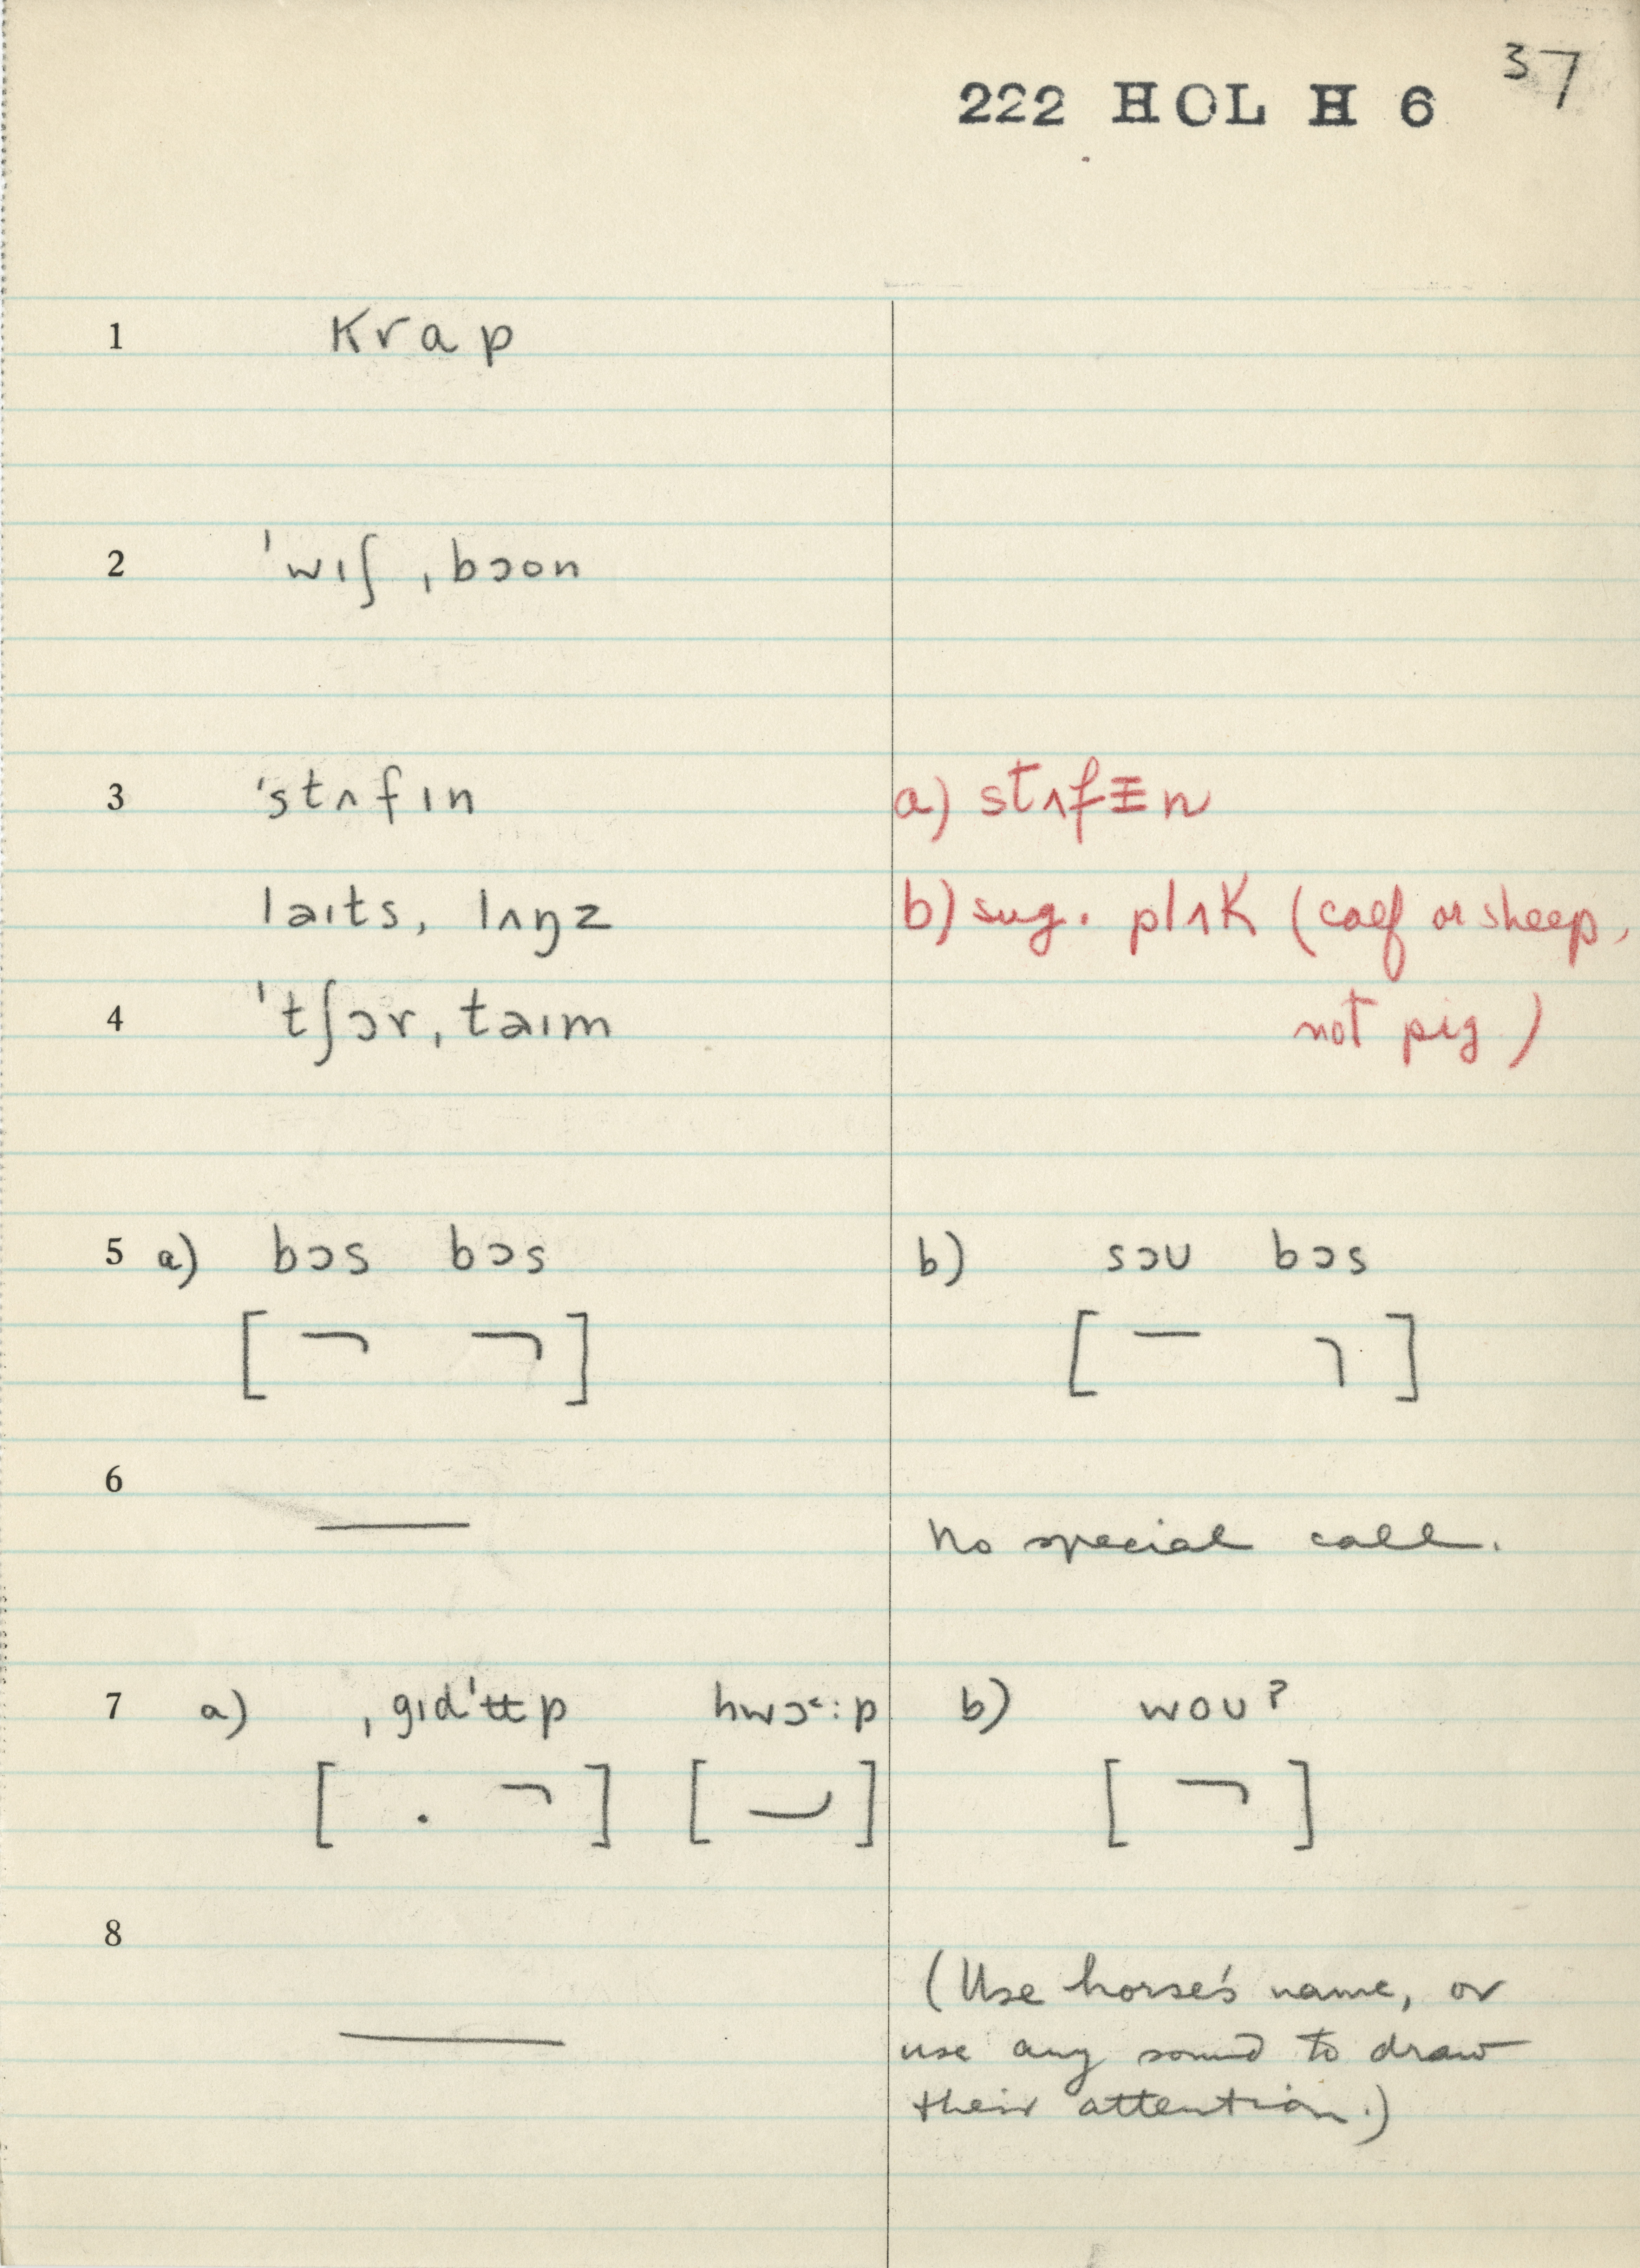 37
222 HOL H 6
1 krap
2 ˈwɪʃ ˌbɔon
3 ˈstʌfɪn a) stʌfɪn
laɪts, lʌŋz b) sug. plʌk (calf or sheep,
4 ˈtʃɔr ˌtaɪm not pig)
5 a) bɔs bɔs b) sɔu bɔs
6 — No special call.
7 a) ˌgɪdˈʉp hwɔ˂:p b) woʊʔ
8 — (Use horse's name, or
use any sound to draw
their attention.)